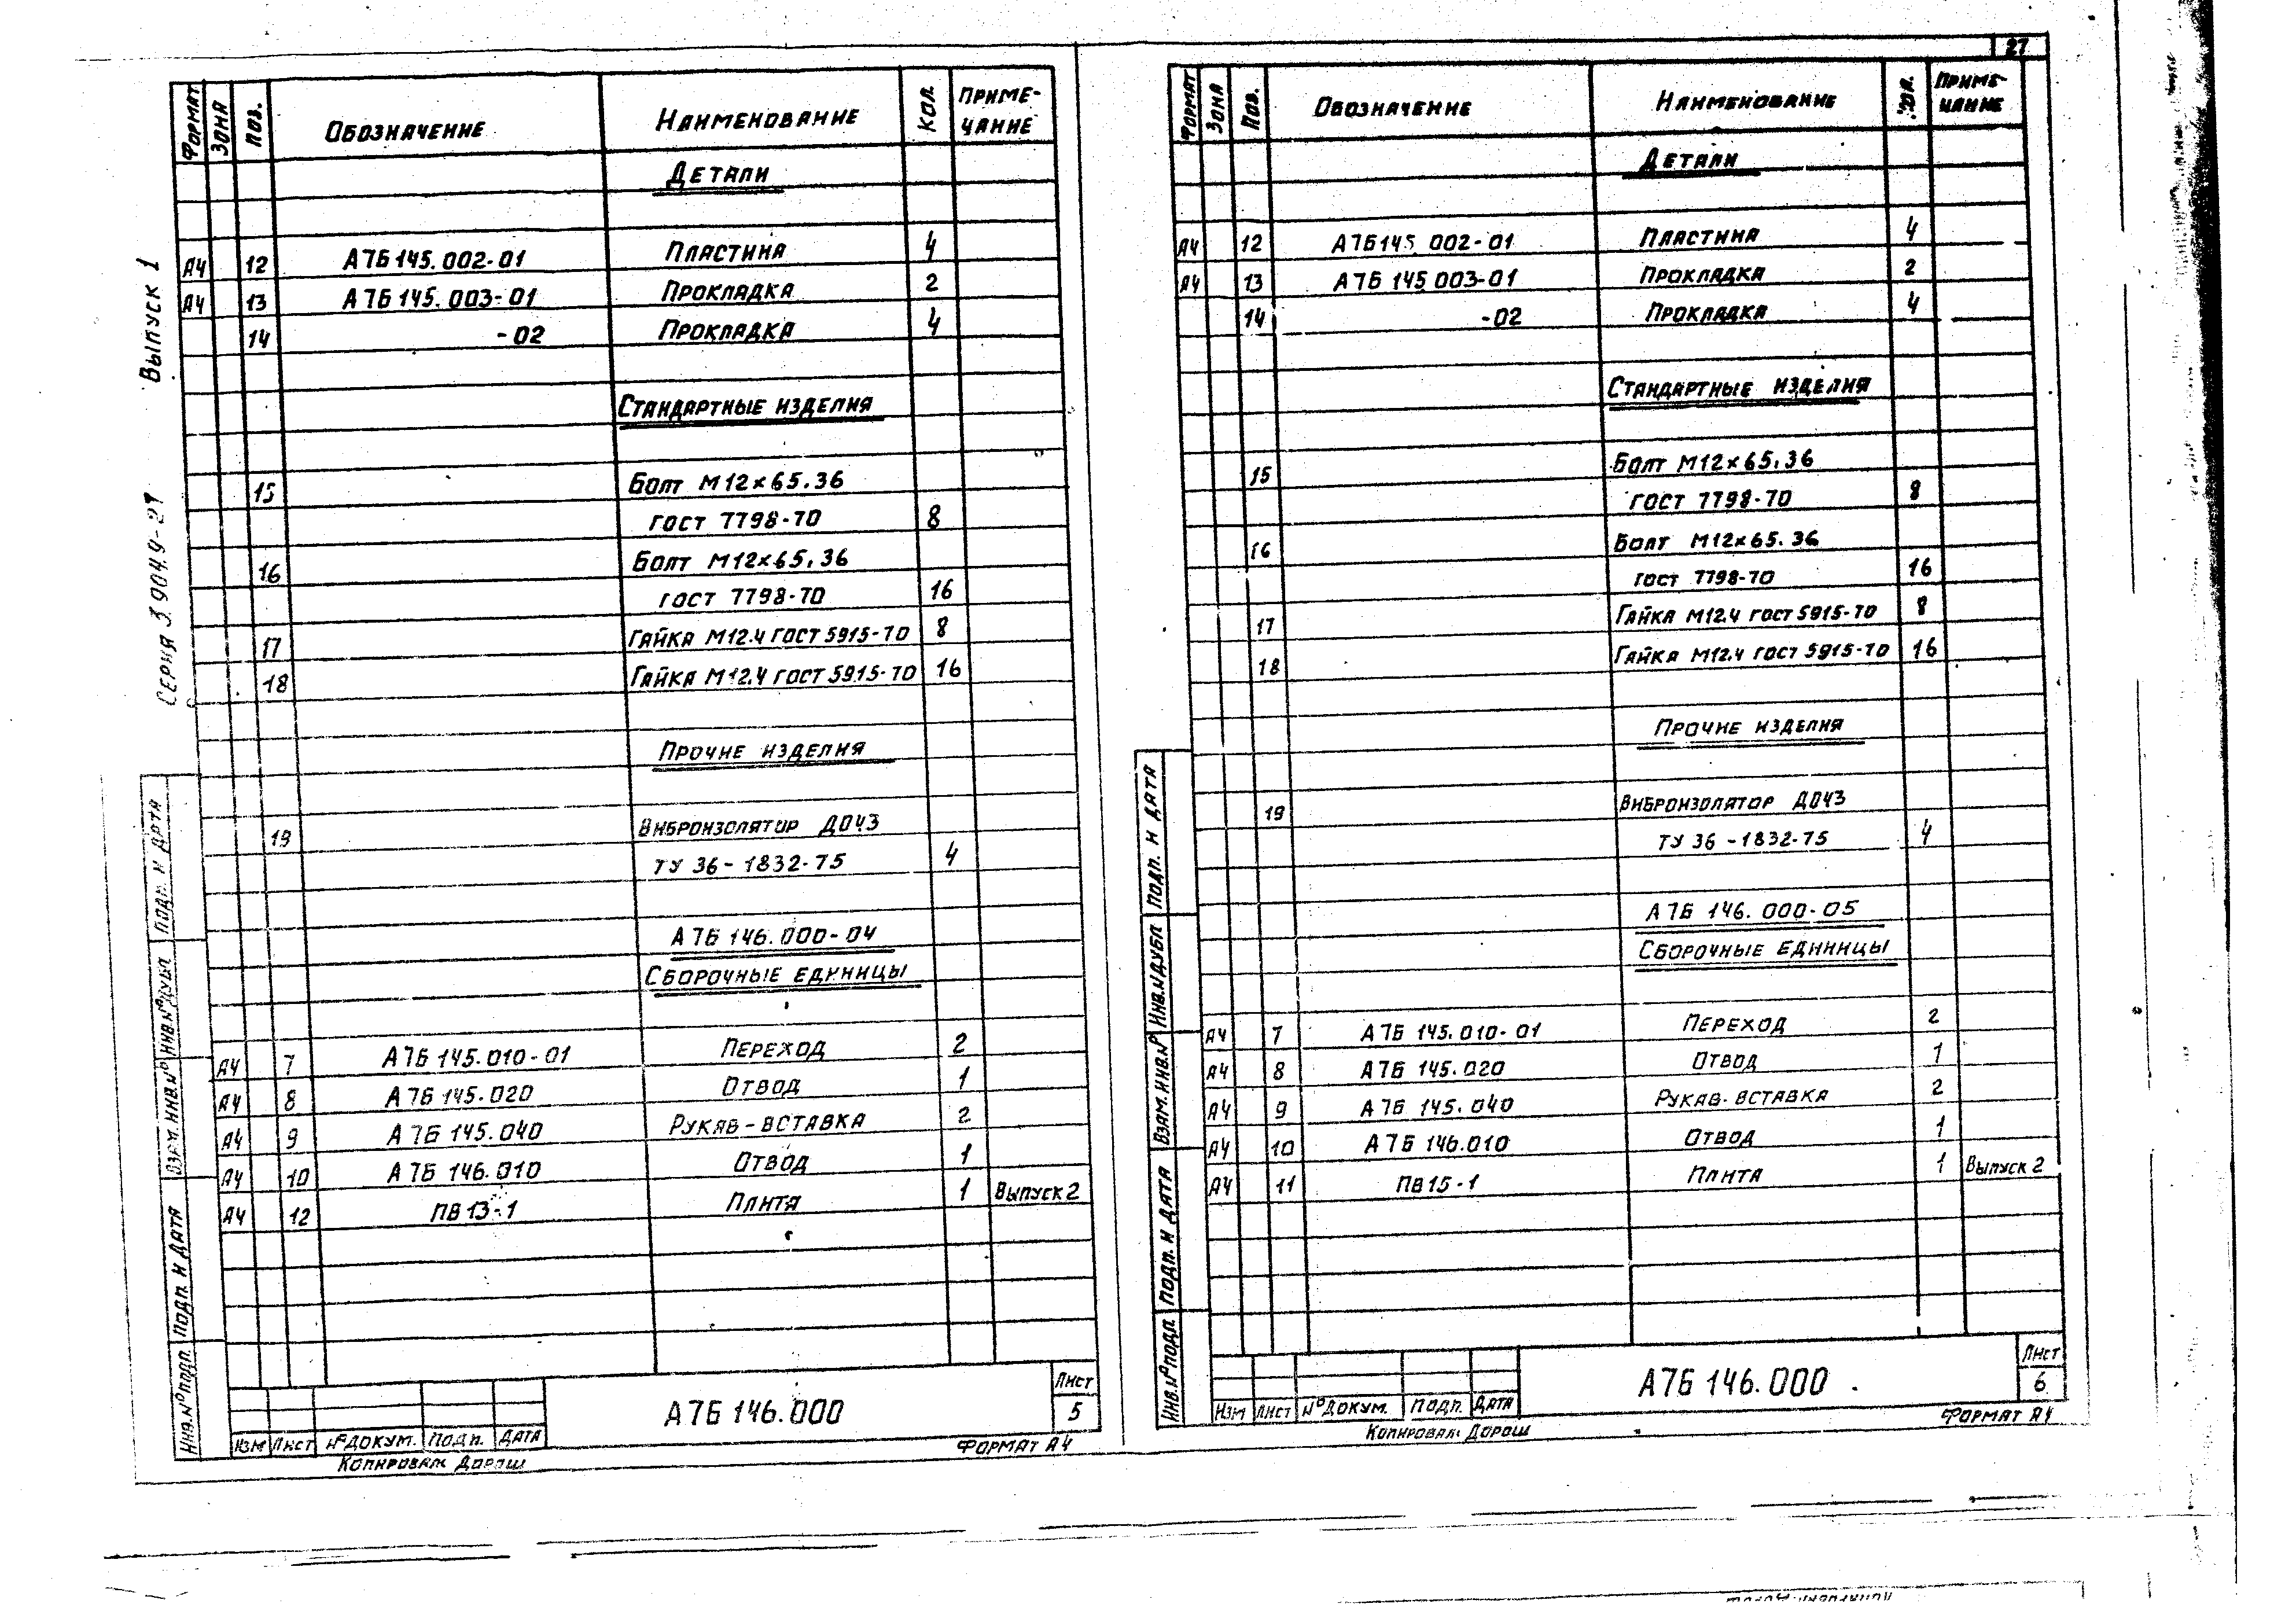 27
Серия 3.904.9-27 Выпуск 1
Формат Зона Поз. Обозначение Наименование Кол. Приме-
чание
Детали
А4 12 А7Б 145.002-01 Пластина 4
А4 13 А7Б 145.003-01 Прокладка 2
14 -02 Прокладка 4
Стандартные изделия
15 Болт М12×65.36
ГОСТ 7798-70 8
16 Болт М12×65.36
ГОСТ 7798-70 16
17 Гайка М12.4 ГОСТ 5915-70 8
18 Гайка М12.4 ГОСТ 5915-70 16
Прочие изделия
19 Виброизолятор ДО43
ТУ 36-1832-75 4
А7Б 146.000-04
Сборочные единицы
А4 7 А7Б 145.010-01 Переход 2
А4 8 А7Б 145.020 Отвод 1
А4 9 А7Б 145.040 Рукав-вставка 2
А4 10 А7Б 146.010 Отвод 1
А4 12 ПВ13-1 Плита 1 Выпуск 2
Инв.№ подл. Подп. и дата Взам. инв.№ Инв.№ дубл Подп. и дата
Изм Лист №докум. Подп. Дата
А7Б 146.000
Лист
5
Копировал: Дораш
Формат А4
Формат Зона Поз. Обозначение Наименование Кол. Приме-
чание
Детали
А4 12 А7Б 145 002-01 Пластина 4
А4 13 А7Б 145 003-01 Прокладка 2
14 -02 Прокладка 4
Стандартные изделия
15 Болт М12×65.36
ГОСТ 7798-70 8
16 Болт М12×65.36
ГОСТ 7798-70 16
17 Гайка М12.4 ГОСТ 5915-70 8
18 Гайка М12.4 ГОСТ 5915-70 16
Прочие изделия
19 Виброизолятор ДО43
ТУ 36-1832-75 4
А7Б 146.000-05
Сборочные единицы
А4 7 А7Б 145.010-01 Переход 2
А4 8 А7Б 145.020 Отвод 1
А4 9 А7Б 145.040 Рукав-вставка 2
А4 10 А7Б 146.010 Отвод 1
А4 11 ПВ15-1 Плита 1 Выпуск 2
Инв.№ подл. Подп. и дата Взам. инв.№ Инв.№ дубл Подп. и дата
Изм Лист №докум. Подп. Дата
А7Б 146.000
Лист
6
Копировал: Дораш
Формат А4